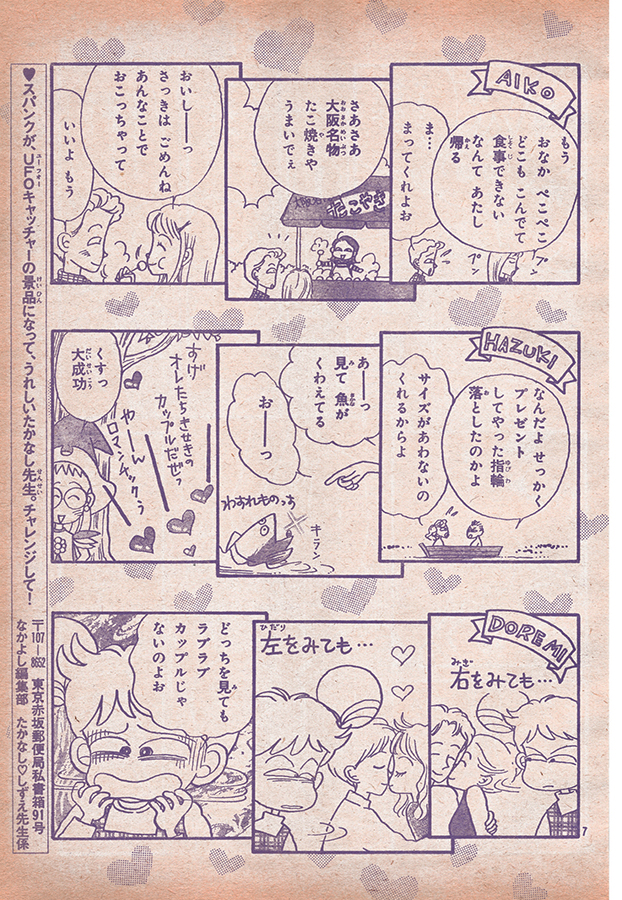 AIKO
もう
おなか ぺこぺこ
どこも こんでて
食事できない
しょくじ
なんて あたし
帰る
かえ
ま…
まってくれよお
プン
プン
さあさあ
大阪名物
おおさかめいぶつ
たこ焼きや
や
うまいでぇ
たこやき
おいしーーっ
さっきは ごめんね
あんなことで
おこっちゃって
いいよ もう
HAZUKI
なんだよ せっかく
プレゼント
してやった指輪
ゆびわ
落としたのかよ
お
サイズがあわないの
くれるからよ
あーーっ
見て 魚が
み さかな
くわえてる
おーーっ
うわすれものっち
キラン
すげ
オレたちきせきの
カップルだぜっ
やーーん
ロマンチックぅ
くすっ
大成功
だいせいこう
DOREMI
右をみても…
みぎ
左をみても…
ひだり
どっちを見ても
み
ラブラブ
カップルじゃ
ないのよお
7
♥スパンクが、UFOキャッチャーの景品になって、うれしいたかなし先生。チャレンジして!
ユーフォー
けいひん
せんせい
〒107-8652 東京赤坂郵便局私書箱91号
なかよし編集部 たかなし♡しずえ先生係